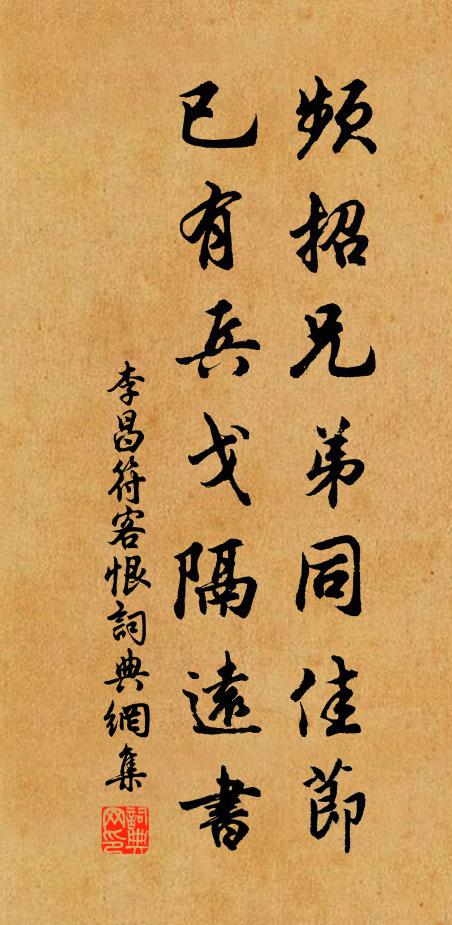 频招兄弟同佳節
已有兵戈隔遠書
李昌符客恨詞典網集
詞典网印